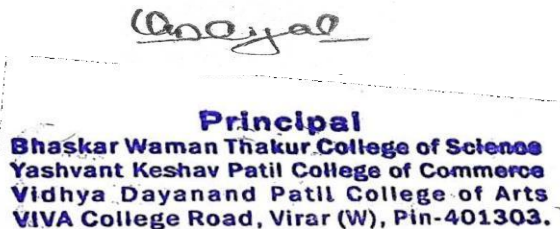 Principal
Bhaskar Waman Thakur College of Science
Yashvant Keshav Patil College of Commerce
Vidhya Dayanand Patil College of Arts
VIVA College Road, Virar (W), Pin-401303.